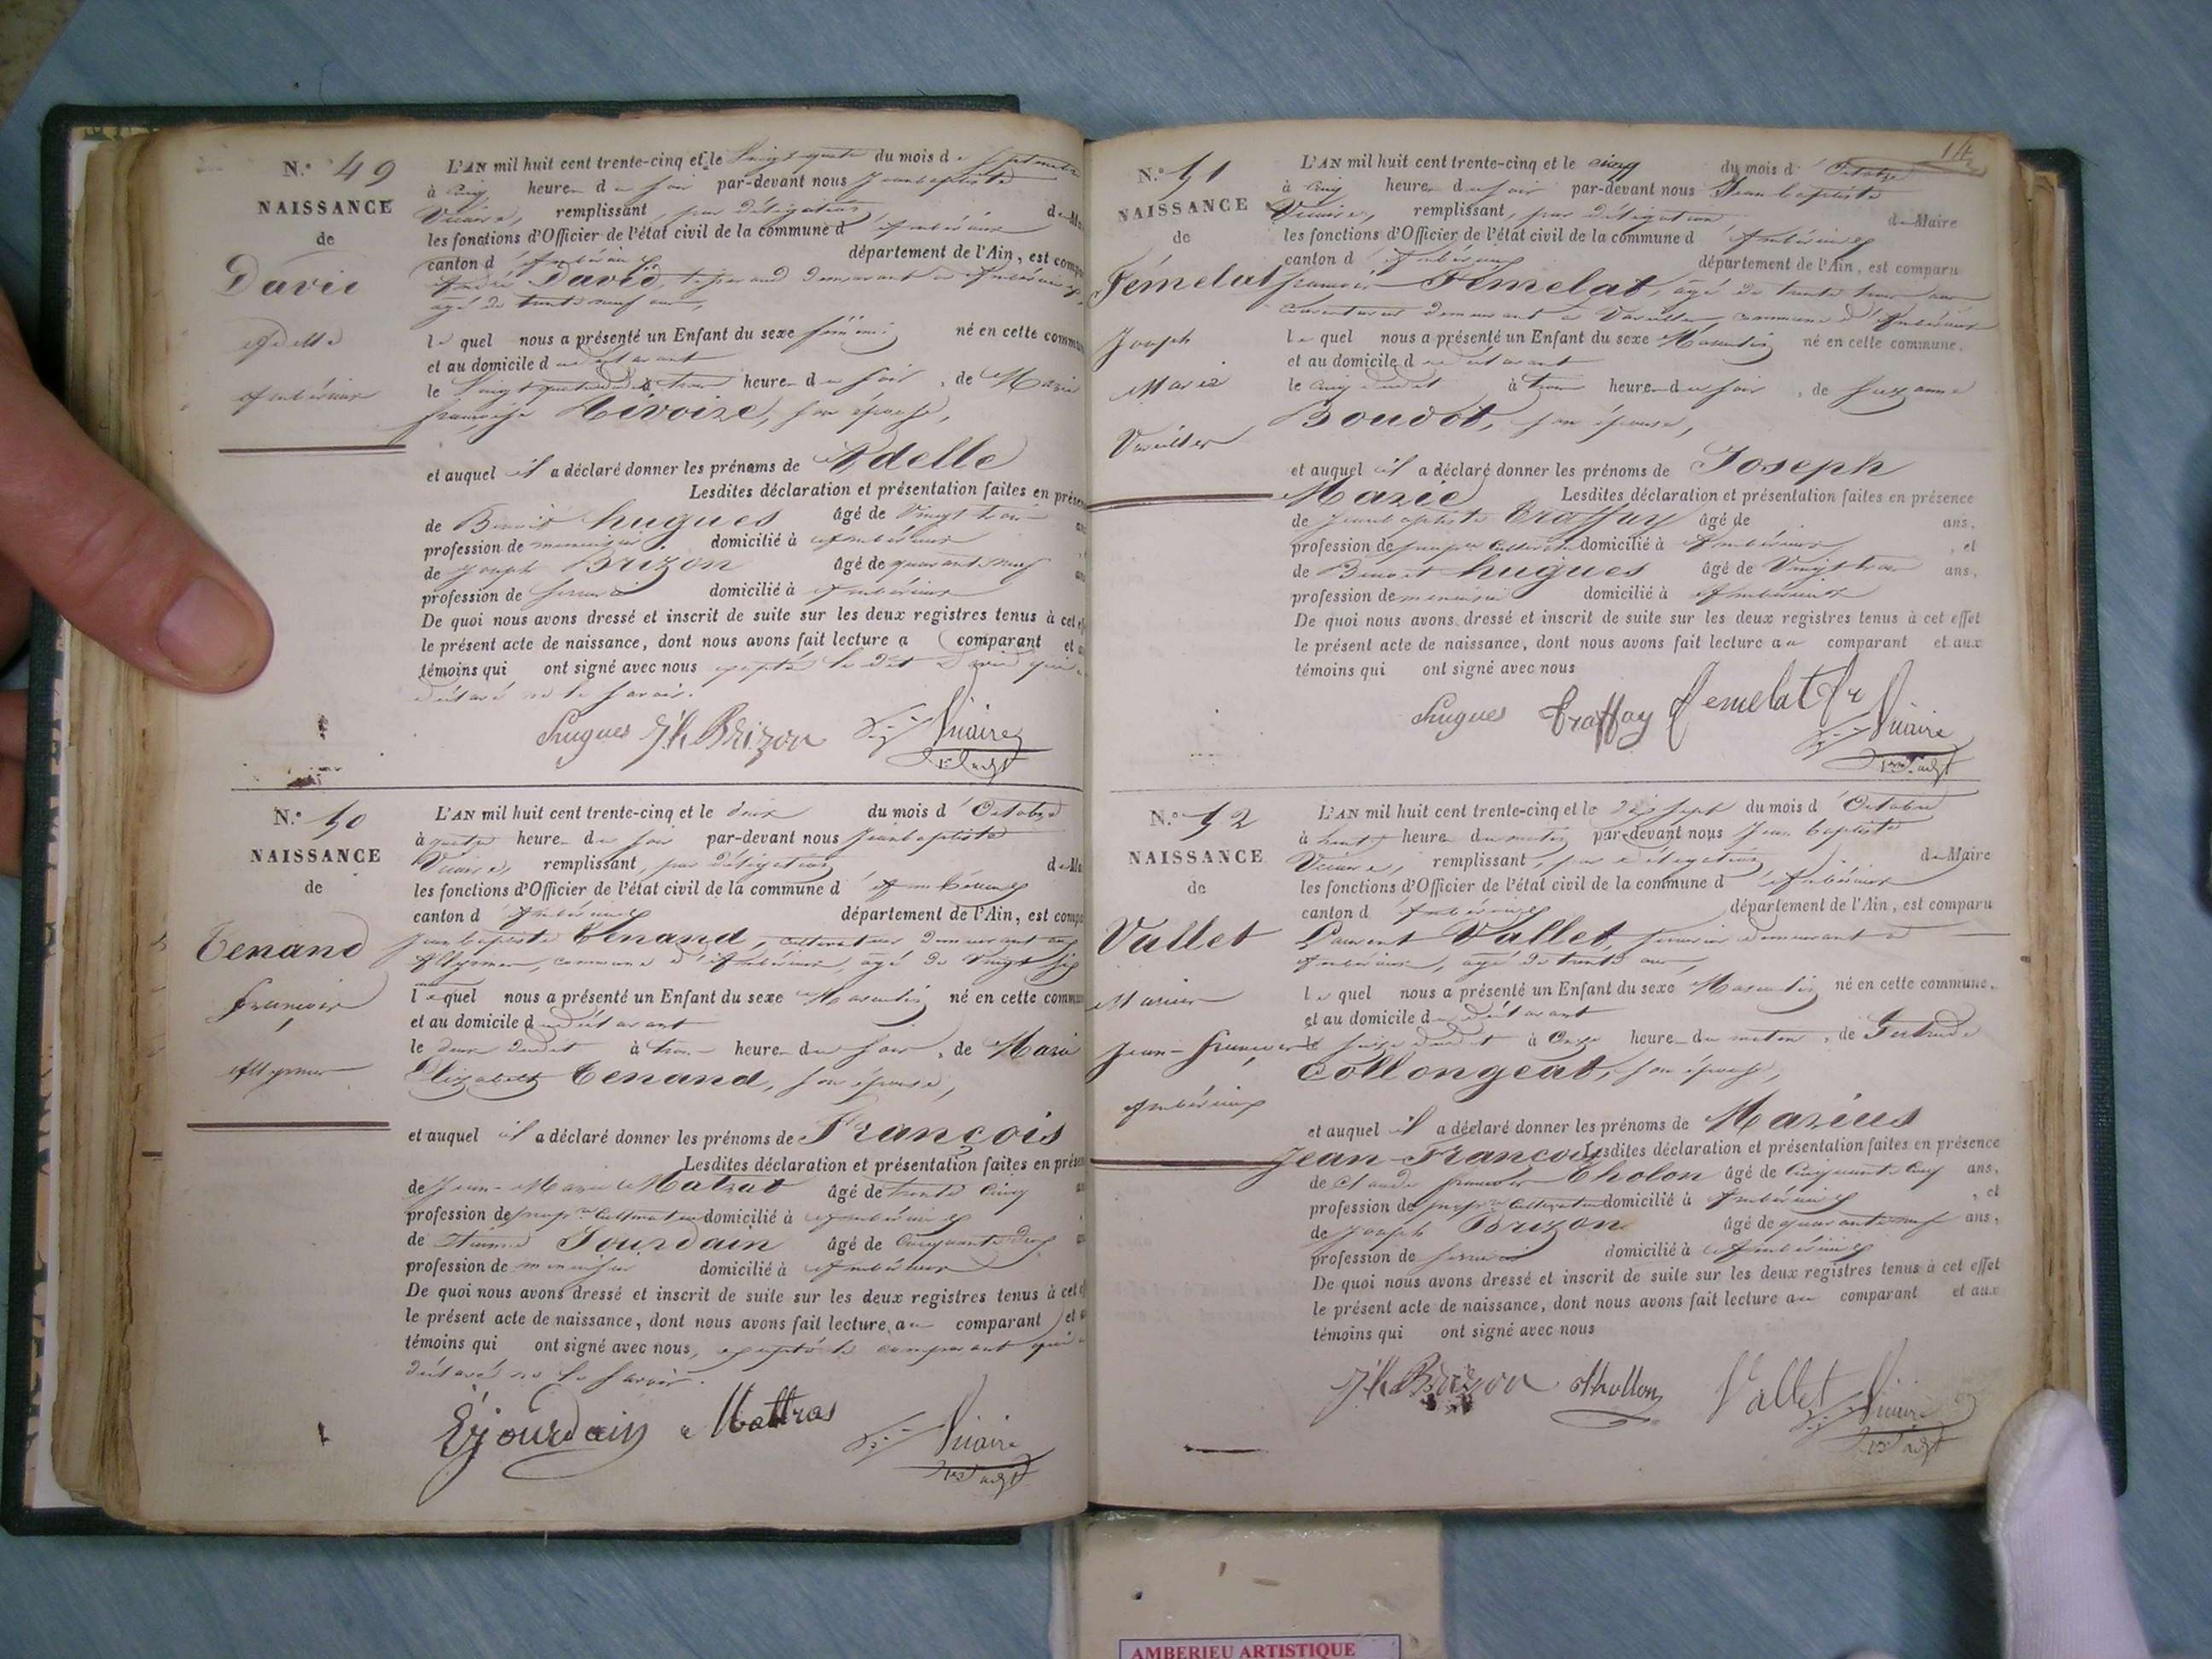 N.° 49
NAISSANCE
de
David
Adelle
Ambérieux
L'AN mil huit cent trente-cinq et le vingt quatre du mois de Septembre
à cinq heures du soir par-devant nous Jean baptiste
Vicaire, remplissant, par délégation du
les fonctions d'Officier de l'état civil de la commune d'Ambérieux
canton d'Ambérieux département de l'Ain, est
André David, demeurant à Ambérieux
âgé de trente neuf ans,
lequel nous a présenté un Enfant du sexe féminin né en cette
et au domicile du déclarant
le vingt quatre dudit à trois heures du soir, de Marie
françoise Livoire, son épouse,
et auquel il a déclaré donner les prénoms de Adelle
Lesdites déclaration et présentation faites en
de Benoit hugues âgé de Vingt trois
profession de menuisier domicilié à Ambérieux
de Joseph Brizon âgé de quarante neuf
profession de serrurier domicilié à Ambérieux
De quoi nous avons dressé et inscrit de suite sur les deux registres tenus à cet
le présent acte de naissance, dont nous avons fait lecture a comparant et
témoins qui ont signé avec nous excepté le dit David qui a
déclaré ne le savoir.
hugues Jh Brizon Vicaire
N.° 50
NAISSANCE
de
Tenand
François
Allymes
L'AN mil huit cent trente-cinq et le deux du mois d'Octobre
à quatre heures du soir par-devant nous Jean baptiste
Vicaire, remplissant, par délégation du
les fonctions d'Officier de l'état civil de la commune d'Ambérieux
canton d'Ambérieux département de l'Ain, est
Jean baptiste Tenand, cultivateur demeurant aux
Allymes, commune d'Ambérieux, âgé de vingt six
ans
lequel nous a présenté un Enfant du sexe Masculin né en cette
et au domicile du déclarant
le deux dudit à trois heures du soir, de Marie
Elizabeth Tenand, son épouse,
et auquel il a déclaré donner les prénoms de François
Lesdites déclaration et présentation faites en
de Jean-Marie Matrat âgé de trente cinq
profession de propre Cultivateur domicilié à Ambérieux
de Etienne Jourdain âgé de Cinquante deux
profession de menuisier domicilié à Ambérieux
De quoi nous avons dressé et inscrit de suite sur les deux registres tenus à cet
le présent acte de naissance, dont nous avons fait lecture au comparant et
témoins qui ont signé avec nous, excepté le comparant qui a
déclaré ne le savoir.
Ejourdain Mattras Vicaire
14
N.° 51
NAISSANCE
de
Fémelat
Joseph
Marie
Vareilles
L'AN mil huit cent trente-cinq et le cinq du mois d'Octobre
à cinq heures du soir par-devant nous Jean baptiste
Vicaire, remplissant, par délégation du Maire
les fonctions d'Officier de l'état civil de la commune d'Ambérieux
canton d'Ambérieux département de l'Ain, est comparu
françois Fémelat, âgé de trente trois ans
demeurant à Vareilles, commune d'Ambérieux
lequel nous a présenté un Enfant du sexe Masculin né en cette commune,
et au domicile du déclarant
le cinq dudit à trois heures du soir, de Suzanne
Boudot, son épouse,
et auquel il a déclaré donner les prénoms de Joseph
Marie Lesdites déclaration et présentation faites en présence
de Jean baptiste Traffay âgé de ans,
profession de propre Cultivateur domicilié à Ambérieux, et
de Benoit hugues âgé de Vingt trois ans,
profession de menuisier domicilié à Ambérieux
De quoi nous avons dressé et inscrit de suite sur les deux registres tenus à cet effet
le présent acte de naissance, dont nous avons fait lecture au comparant et aux
témoins qui ont signé avec nous
hugues traffay femelat fr Vicaire
N.° 52
NAISSANCE
de
Vallet
Marius
Jean-françois
Ambérieux
L'AN mil huit cent trente-cinq et le dix sept du mois d'Octobre
à huit heures du matin par-devant nous Jean baptiste
Vicaire, remplissant, par délégation du Maire
les fonctions d'Officier de l'état civil de la commune d'Ambérieux
canton d'Ambérieux département de l'Ain, est comparu
Laurent Vallet, demeurant à
Ambérieux, âgé de trente ans,
lequel nous a présenté un Enfant du sexe Masculin né en cette commune,
et au domicile du déclarant
le seize dudit à Onze heures du matin, de Gertrude
Collongeat, son épouse,
et auquel il a déclaré donner les prénoms de Marius
Jean-François Lesdites déclaration et présentation faites en présence
de Claude françois Tholon âgé de Cinquante Cinq ans,
profession de propre Cultivateur domicilié à Ambérieux, et
de Joseph Brizon âgé de quarante neuf ans,
profession de serrurier domicilié à Ambérieux
De quoi nous avons dressé et inscrit de suite sur les deux registres tenus à cet effet
le présent acte de naissance, dont nous avons fait lecture au comparant et aux
témoins qui ont signé avec nous
Jh Brizon thollon Vallet Vicaire
AMBERIEU ARTISTIQUE